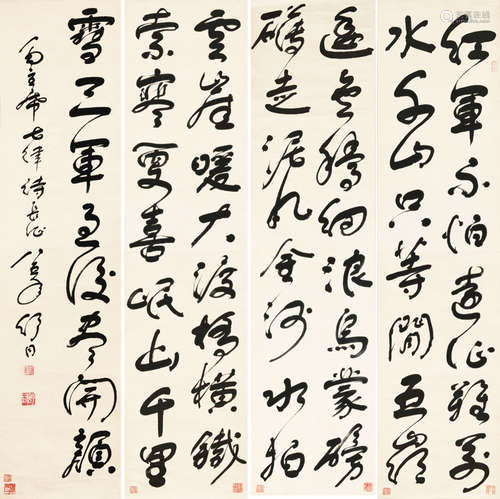 紅軍不怕遠征難萬
水千山只等閒五嶺
逶迤騰細浪烏蒙磅
礴走泥丸金沙水拍
雲崖暖大渡橋橫鐵
索寒更喜岷山千里
雪三軍過後盡開顏
毛主席七律詩長征 舒同